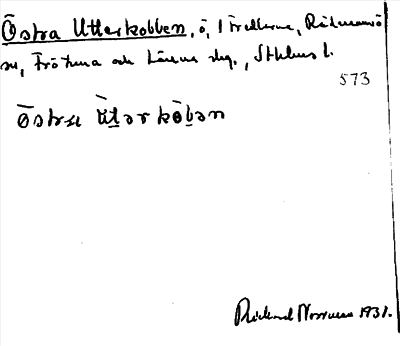 Östra Utterkobben, ö, i Fredlarna, Rådmansö
sn, Frötuna och Länna skg., Sthlms l.
573
östra ùtər kòbən
Rickard Norrman 1931.